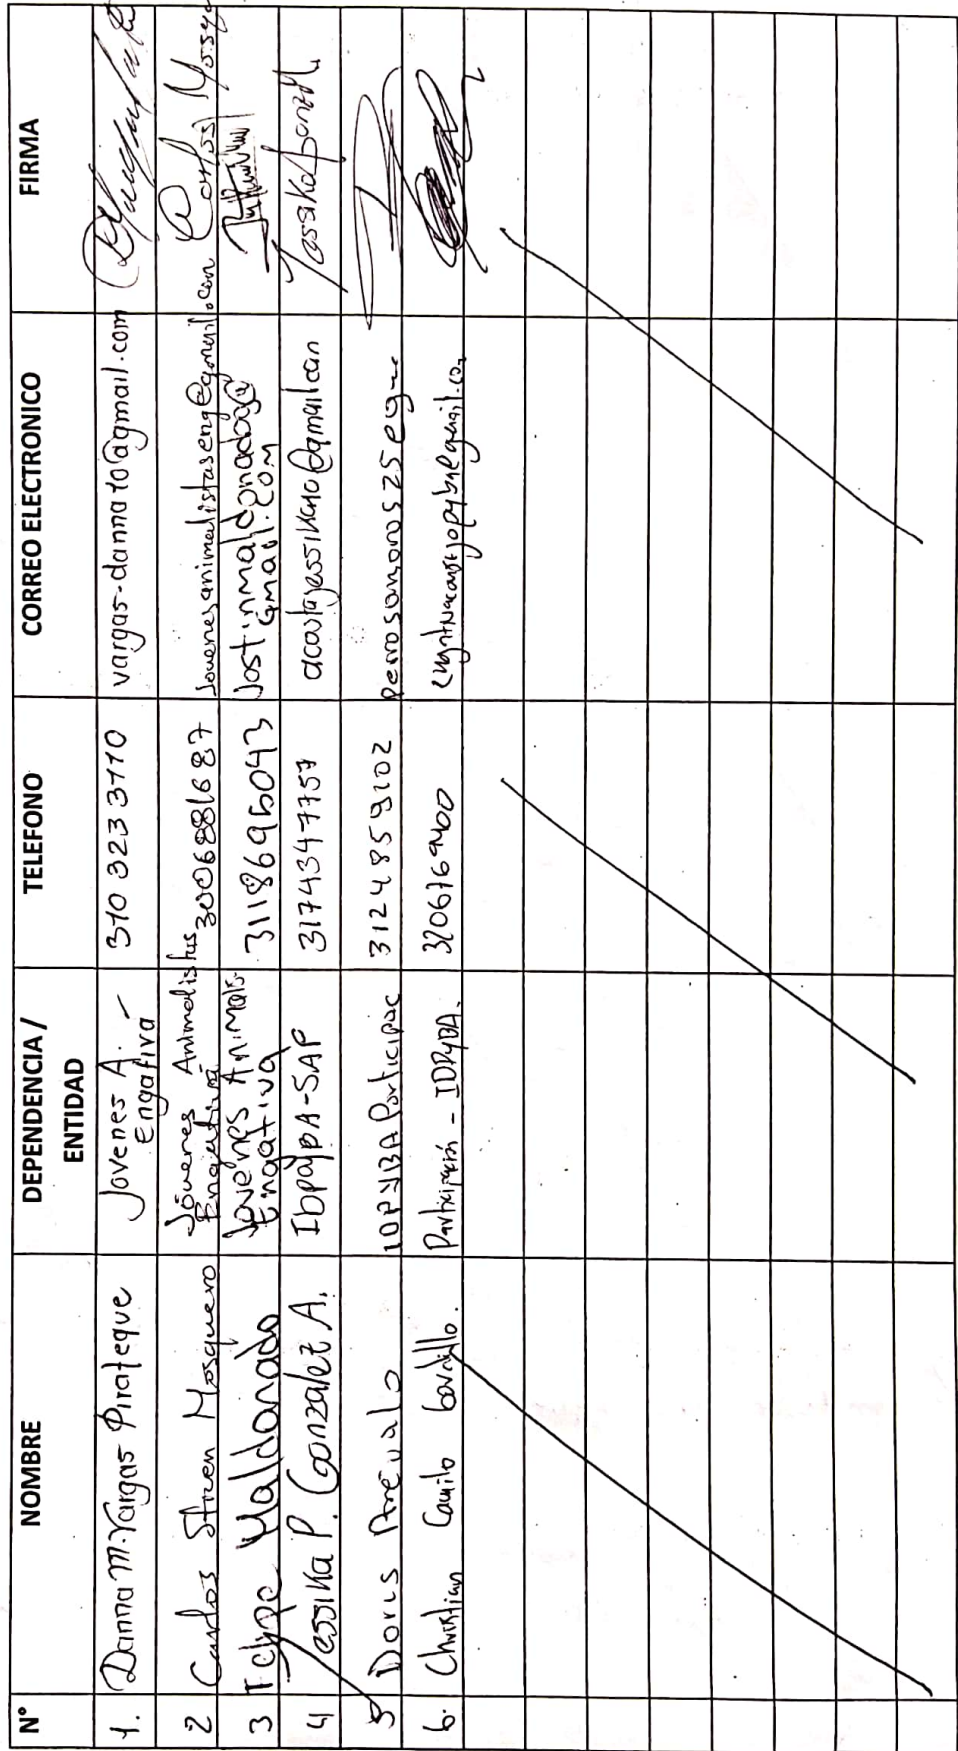 N° NOMBRE DEPENDENCIA / ENTIDAD TELEFONO CORREO ELECTRONICO FIRMA
1. Danna M. Vargas Pirateque Jovenes A. - Engativa 310 323 3110 vargas-danna10@gmail.com
2 Carlos Stiven Mosquero Jóvenes Animalistas Engativá 3006881687 jovenesanimalistaseng@gmail.com Carlos Mosq
3 Felipe Maldonado Jovenes Animalis Engativa 3118696043 Jostinmaldonado@gmail.com
4 Yessika P. Gonzalez A. IDPYBA-SAP 3174347757 Yessika Gonzalez
5 Dorus Arevalo IDPYBA Participac 3124859102
6. Christian Camilo Participación - IDPYBA.